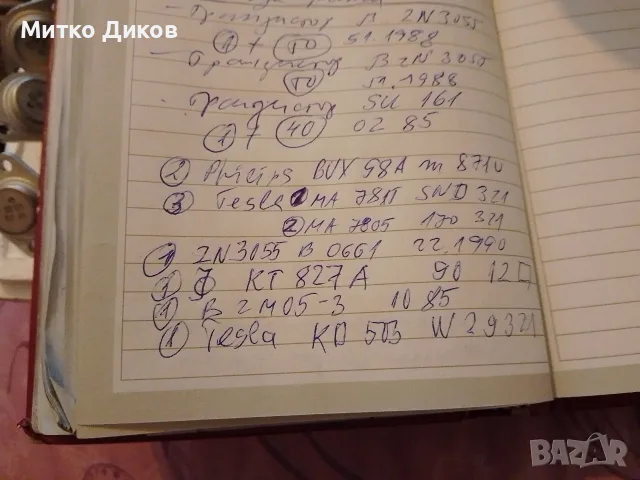 Митко Диков
Транзистор B 2N3055
1 7 TO 51.1988
Транзистор B 2N 3055
TO 51.1988
Транзистор SU 161
1 7 40 02 85
2 Philips BUX 98A m 8710
3 Tesla 1 MA 7811 SND 321
2 MA 7805 170 321
1 2N3055 B 0661 22.1990
КТ 827А 90 12
1 B 2M05-3 10 85
1 Tesla KD 503 W 29321
BAZAR